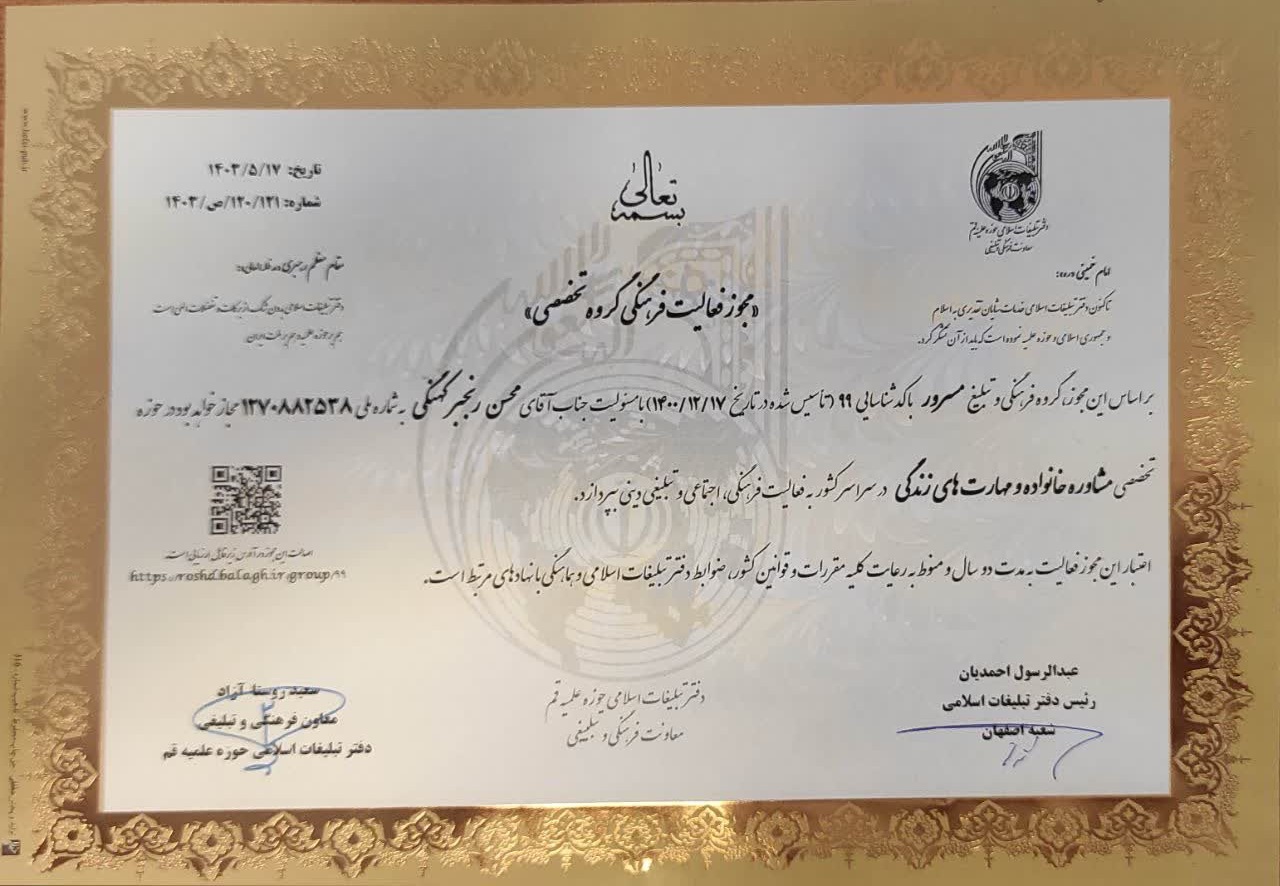 بسمه تعالی
دفتر تبلیغات اسلامی حوزه علمیه قم
معاونت فرهنگی و تبلیغی
تاریخ: ۱۴۰۳/۵/۱۷
شماره: ۱۲۰/۱۲۱/ص/۱۴۰۳
امام خمینی
تاکنون دفتر تبلیغات اسلامی خدمات شایان تقدیری به اسلام
و جمهوری اسلامی و حوزه علمیه نموده است که باید از آن تشکر کرد.
مقام معظم رهبری
دفتر تبلیغات اسلامی بدون شک از برکات و تفضلات الهی است
هم بر حوزه علمیه هم بر ملت ایران
«مجوز فعالیت فرهنگی گروه تخصصی»
بر اساس این مجوز، گروه فرهنگی و تبلیغ مسرور با کد شناسایی ۹۹ (تأسیس شده در تاریخ ۱۴۰۰/۱۲/۱۷) با مسئولیت جناب آقای محسن رنجبر کهنگی به شماره ملی ۱۲۷۰۸۸۲۵۳۸ مجاز خواهد بود در حوزه
تخصصی مشاوره خانواده و مهارت های زندگی در سراسر کشور به فعالیت فرهنگی، اجتماعی و تبلیغی دینی بپردازد.
اصالت این مجوز در آدرس زیر قابل ارزیابی است.
https://roshd.balagh.ir/group/99
اعتبار این مجوز فعالیت به مدت دو سال و منوط به رعایت کلیه مقررات و قوانین کشور، ضوابط دفتر تبلیغات اسلامی و هماهنگی با نهادهای مرتبط است.
عبدالرسول احمدیان
رئیس دفتر تبلیغات اسلامی
شعبه اصفهان
دفتر تبلیغات اسلامی حوزه علمیه قم
معاونت فرهنگی و تبلیغی
سعید روستا آزاد
معاون فرهنگی و تبلیغی
دفتر تبلیغات اسلامی حوزه علمیه قم